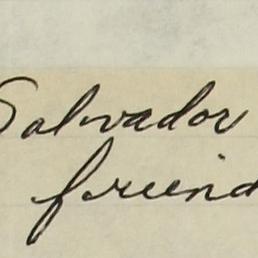 Salvador
friend